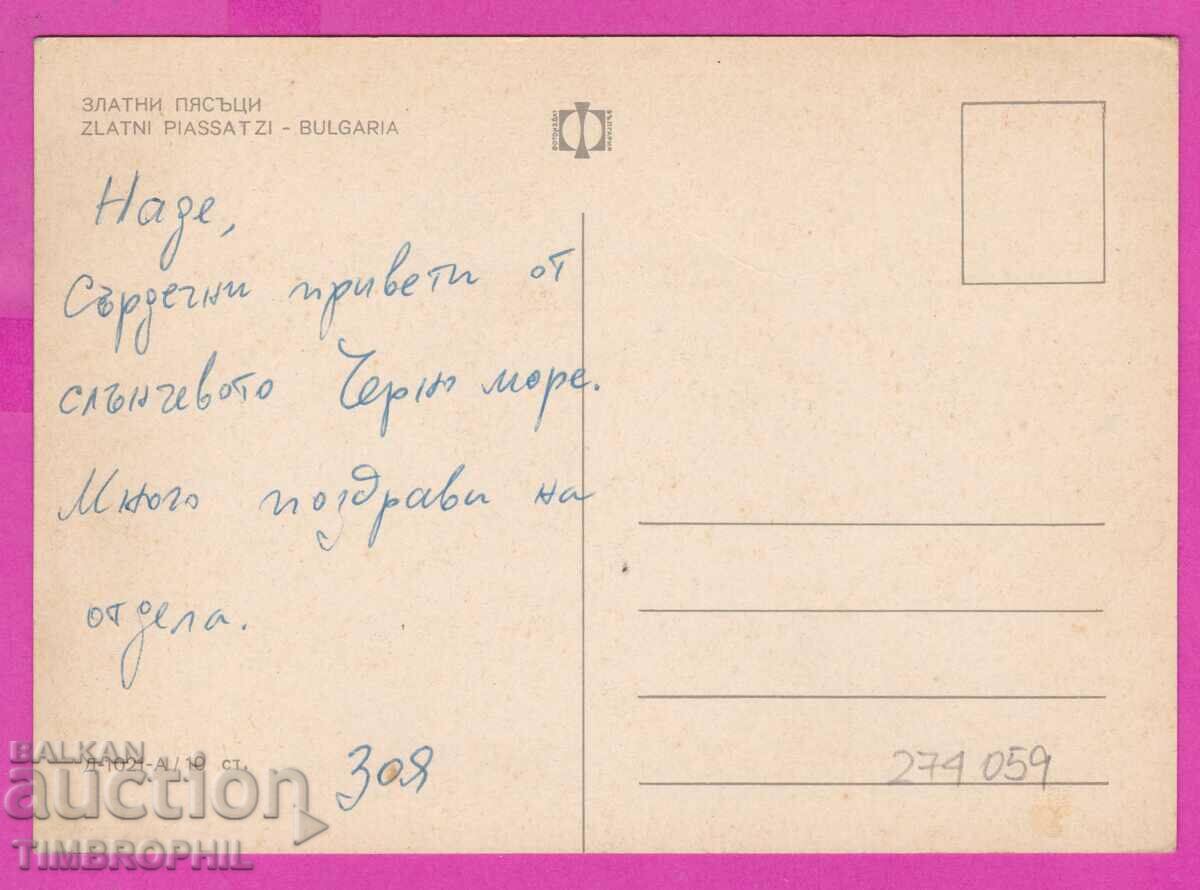 ЗЛАТНИ ПЯСЪЦИ
ZLATNI PIASSATZI - BULGARIA
ФОТОИЗДАТ
БЪЛГАРИЯ
Наде,
Сърдечни привети от
слънчевото Черно море.
Много поздрави на
отдела.
Зоя
Д-1021-А/10 ст.
274 059
BALKAN
auction
TIMBROPHIL